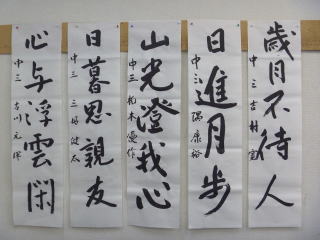 歳月不待人
中三 吉村
日進月歩
中三
山光澄我心
中三 優作
日暮思親友
中三 三好健太
心与浮雲閑
中三 吉川元